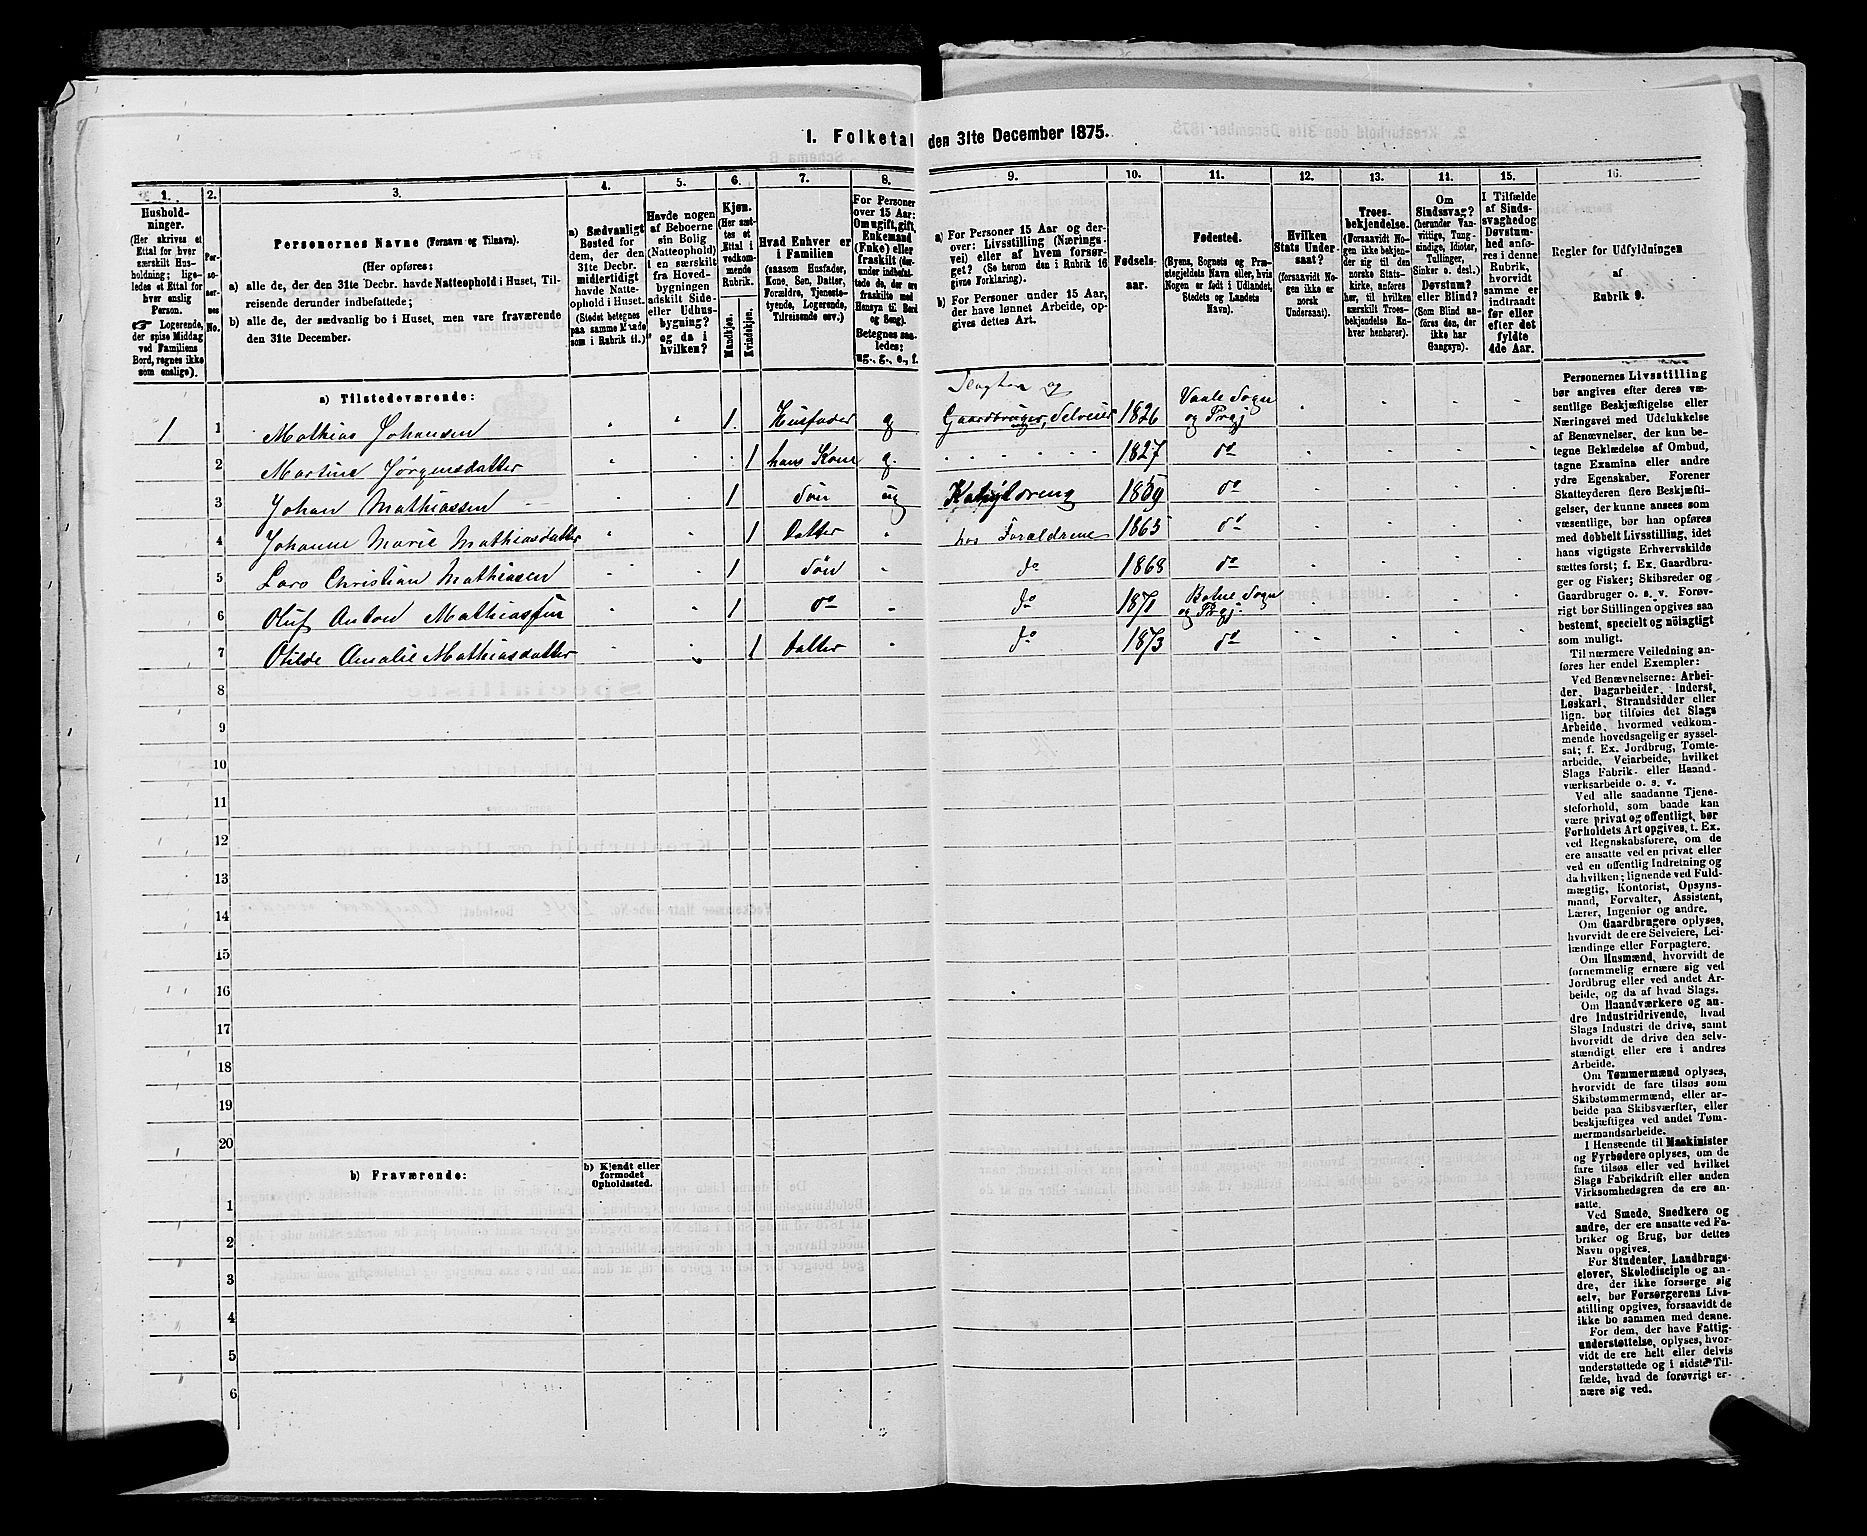 I. Folketal den 31te December 1875.
1.
Hushold-
ninger.
(Her skrives et
Ettal for hver
særskilt Hus-
holdning; lige-
ledes et Ettal for
hver enslig
Person.
☞ Logerende,
der spise Middag
ved Familiens
Bord, regnes ikke
som enslige).
2.
Per-
so-
ner-
nes
No.
3.
Personernes Navne (Fornavn og Tilnavn).
(Her opføres:
a) alle de, der den 31te Decbr. havde Natteophold i Huset, Til-
reisende derunder indbefattede;
b) alle de, der sædvanlig bo i Huset, men vare fraværende
den 31te December.
4.
a) Sædvanligt
Bosted for
dem, der den
31te Decbr.
midlertidigt
havde Natte-
ophold i Huset.
(Stedet betegnes
paa samme Maade
som i Rubrik 11.)
5.
Havde nogen
af Beboerne
sin Bolig
(Natteophold)
i en særskilt
fra Hoved-
bygningen
adskilt Side-
eller Udhus-
bygning?
og da i
hvilken?
6.
Kjøn.
(Her sæt-
tes et
Ettal i
vedkom-
mende
Rubrik.
Mandkjøn.
Kvindekjøn.
7.
Hvad Enhver er
i Familien
(saasom Husfader,
Kone, Søn, Datter,
Forældre, Tjeneste-
tyende, Logerende,
Tilreisende osv.)
8.
For Personer
over 15 Aar:
Om ugift, gift,
Enkemand
(Enke) eller
fraskilt (der-
under indbefat-
tede de, der ere
fraskilte med
Hensyn til Bord
og Seng).
Betegnes saa-
ledes:
ug., g., e., f.
9.
a) For Personer 15 Aar og der-
over: Livsstilling (Nærings-
vei) eller af hvem forsør-
get? (Se herom den i Rubrik 16
givne Forklaring).
b) For Personer under 15 Aar,
der have lønnet Arbeide, op-
gives dettes Art.
10.
Fødsels-
aar.
11.
Fødested.
(Byens, Sognets og Præ-
stegjeldets Navn eller, hvis
Nogen er født i Udlandet,
Stedets og Landets
Navn).
12.
Hvilken
Stats Under-
saat?
(forsaavidt No-
gen ikke er
norsk
Undersaat).
13.
Troes-
bekjendelse.
(Forsaavidt No-
gen ikke bekjen-
der sig til den
norske Stats-
kirke, anføres
her, til hvilken
særskilt Troes-
bekjendelse En-
hver henhører).
14.
Om
Sindssvag?
(herunder Van-
vittige, Tung-
sindige, Idioter,
Tullinger,
Sinker o. desl.)
Døvstum?
eller Blind?
(Som Blind an-
føres den, der
ikke har
Gangsyn).
15.
I Tilfælde
af Sinds-
svaghed og
Døvstum-
hed anfø-
res i denne
Rubrik,
hvorvidt
samme er
indtraadt
før eller
efter det
fyldte
4de Aar.
16.
Regler for Udfyldningen
af
Rubrik 9.
a) Tilstedeværende:
1 1 Mathias Johansen 1 Husfader g Slagter og Gaardbruger, Selveier 1826 Vaale Sogn og Prgj
2 Martine Jørgensdatter 1 hans Kone g. 1827 do
3 Johan Mathiassen 1 Søn ug 1859 do
4 Johanne Marie Mathiasdatter 1 Datter hos Forældrene 1865 do
5 Lars Christian Mathiasen 1 Søn do 1868 do
6 Oluf Anton Mathiassen 1 do do 1871 Botne Sogn og Prgj.
7 Otilde Amalie Mathiasdatter 1 Datter do 1873 do
8
9
10
11
12
13
14
15
16
17
18
19
20
b) Fraværende:
b) Kjendt eller
formodet
Opholdssted.
1
2
3
4
5
6
Personernes Livsstilling
bør angives efter deres væ-
sentlige Beskjæftigelse eller
Næringsvei med Udelukkelse
af Benævnelser, der kun be-
tegne Beklædelse af Ombud,
tagne Examina eller andre
ydre Egenskaber. Forener
Skatteyderen flere Beskjæfti-
gelser, der kunne ansees som
væsentlige, bør han opføres
med dobbelt Livsstilling, idet
hans vigtigste Erhvervskilde
sættes først; f. Ex. Gaardbru-
ger og Fisker; Skibsreder og
Gaardbruger o. s. v. Forøv-
rigt bør Stillingen opgives saa
bestemt, specielt og nöiagtigt
som muligt.
Til nærmere Veiledning an-
føres her endel Exempler:
Ved Benævnelserne: Arbei-
der, Dagarbeider, Inderst,
Løskarl, Strandsidder eller
lign. bør tilføies det Slags
Arbeide, hvormed vedkom-
mende hovedsagelig er syssel-
sat; f. Ex. Jordbrug, Tomte-
arbeide, Veiarbeide, hvilket
Slags Fabrik- eller Haand-
værksarbeide o. s. v.
Ved alle saadanne Tjene-
steforhold, som baade kan
være privat og offentligt, bør
Forholdets Art opgives, t. Ex.
ved Regnskabsførere, om de
ere ansatte ved en privat eller
ved en offentlig Indretning og
da hvilken; lignende ved Fuld-
mægtig, Kontorist, Opsyns-
mand, Forvalter, Assistent,
Lærer, Ingeniør og andre.
Om Gaardbrugere oplyses,
hvorvidt de ere Selveiere, Lei-
lændinge eller Forpagtere.
Om Husmænd, hvorvidt de
fornemmelig ernære sig ved
Jordbrug eller ved andet Ar-
beide, og da af hvad Slags.
Om Haandværkere og an-
dre Industridrivende, hvad
Slags Industri de drive, samt
hvorvidt de drive den selv-
stændigt eller ere i andres
Arbeide.
Om Tømmermænd oplyses,
hvorvidt de fare tilsøs som
Skibstømmermænd, eller ar-
beide paa Skibsværfter, eller
beskjæftiges ved andet Tøm-
mermandsarbeide.
I Henseende til Maskinister
og Fyrbødere oplyses, om de
fare tilsøs eller ved hvilket
Slags Fabrikdrift eller anden
Virksomhedsgren de ere an-
satte.
Ved Smede, Snedkere og
andre, der ere ansatte ved Fa-
briker og Brug, bør dettes
Navn opgives.
For Studenter, Landbrugs-
elever, Skoledisciple og an-
dre, der ikke forsørge sig
selv, bør Forsørgerens Livs-
stilling opgives, forsaavidt de
ikke bo sammen med denne.
For dem, der have Fattig-
understøttelse, oplyses, hvor-
vidt de ere helt eller delvis
understøttede og i sidste Til-
fælde, hvad de forøvrigt er-
nære sig ved.